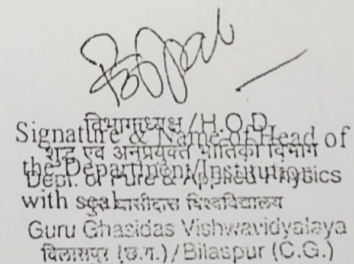 विभागाध्यक्ष/H.O.D.
Signature & Name of Head of
शुद्ध एवं अनुप्रयुक्त भौतिकी विभाग
the Department/Institution
Dept. of Pure & Applied Physics
with seal
गुरू घासीदास विश्वविद्यालय
Guru Ghasidas Vishwavidyalaya
बिलासपुर (छ.ग.)/Bilaspur (C.G.)